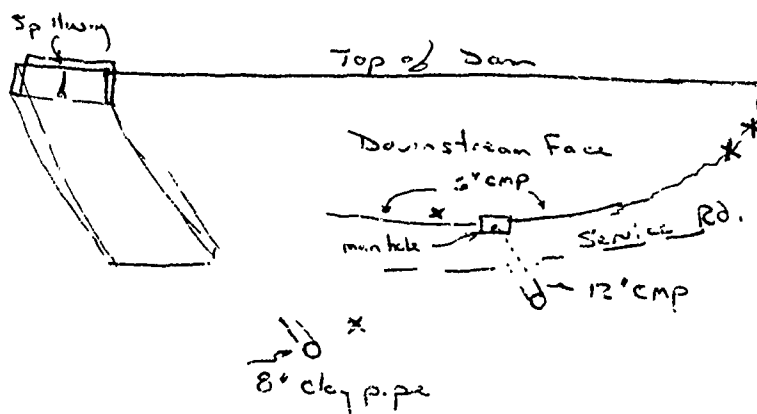 Spillway
Top of Dam
Downstream Face
CMP
manhole
Service Rd.
12" CMP
8" Clay pipe